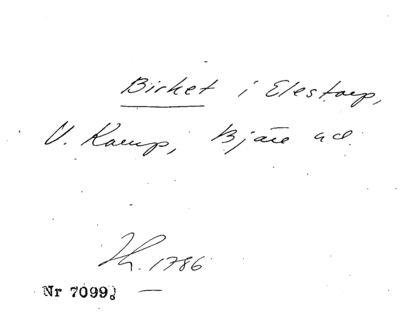 Birket i Elestorp,
V. Karup, Bjäre hd.
Th. 1786
Nr 7099.